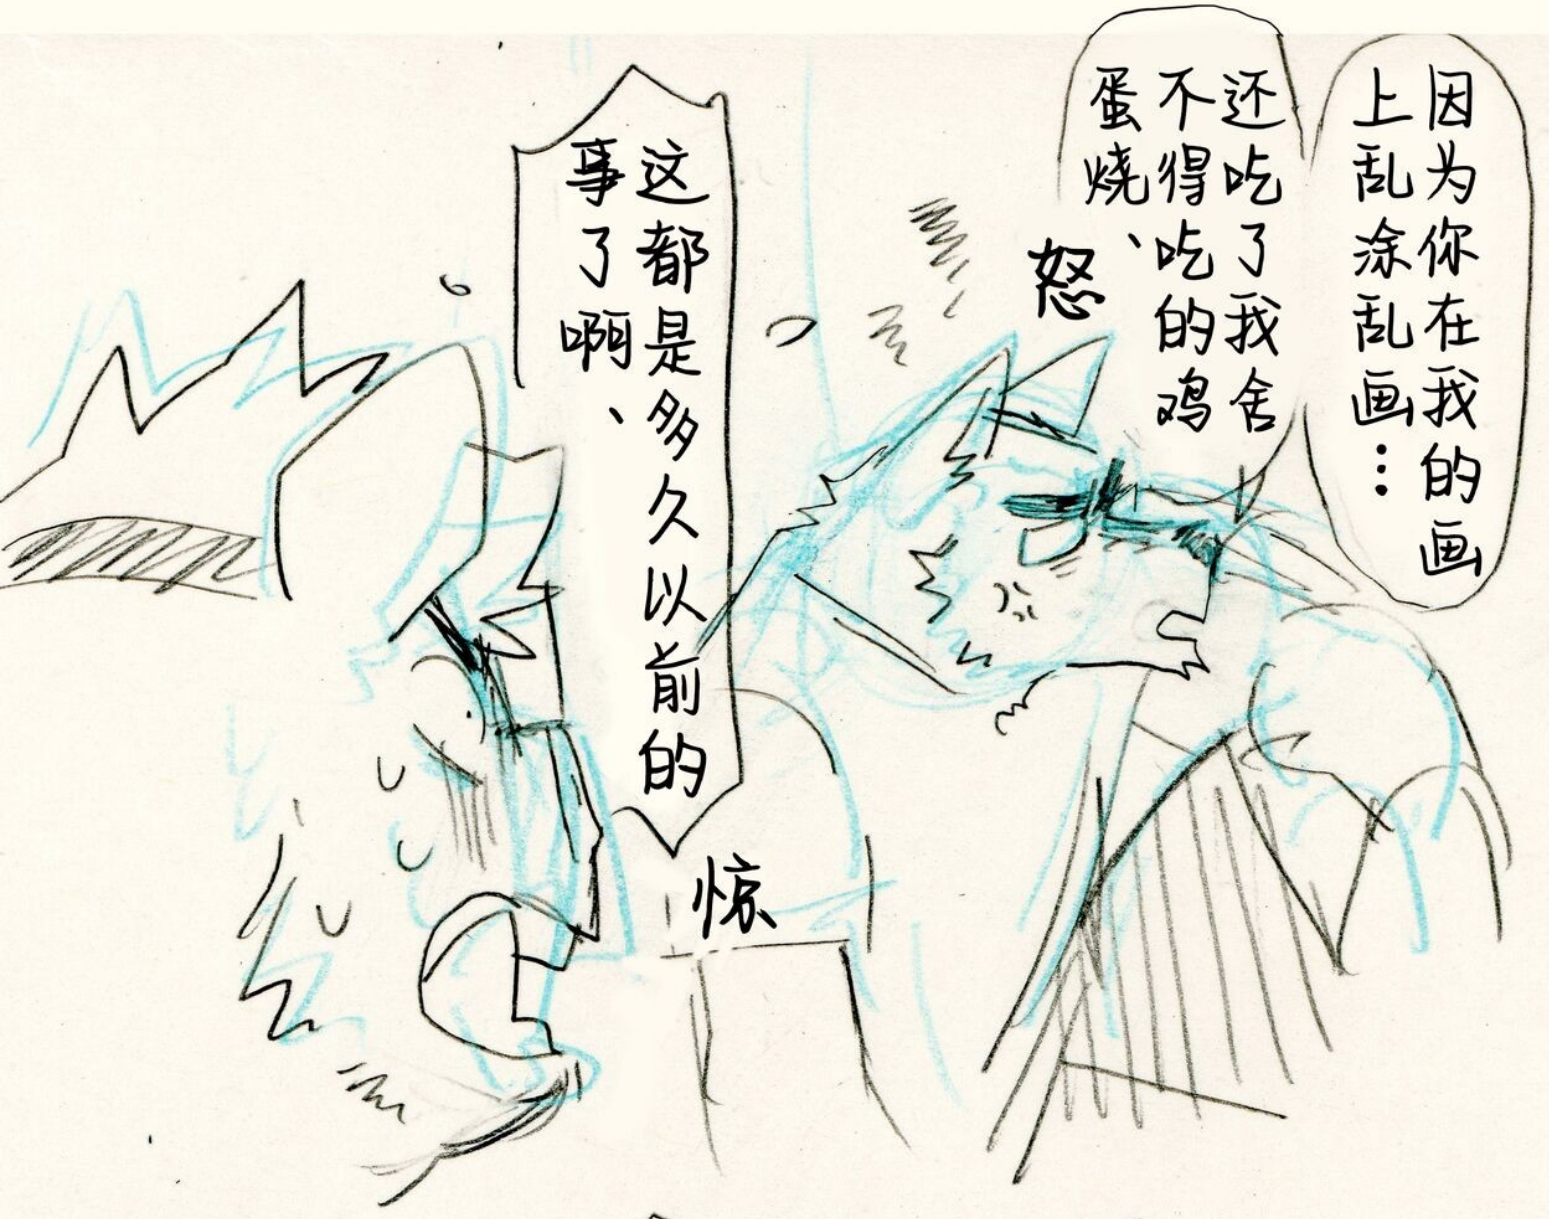 因为你在我的画
上乱涂乱画…
还吃了我舍
不得吃的鸡
蛋烧、
怒
这都是多久以前的
事了啊、
惊